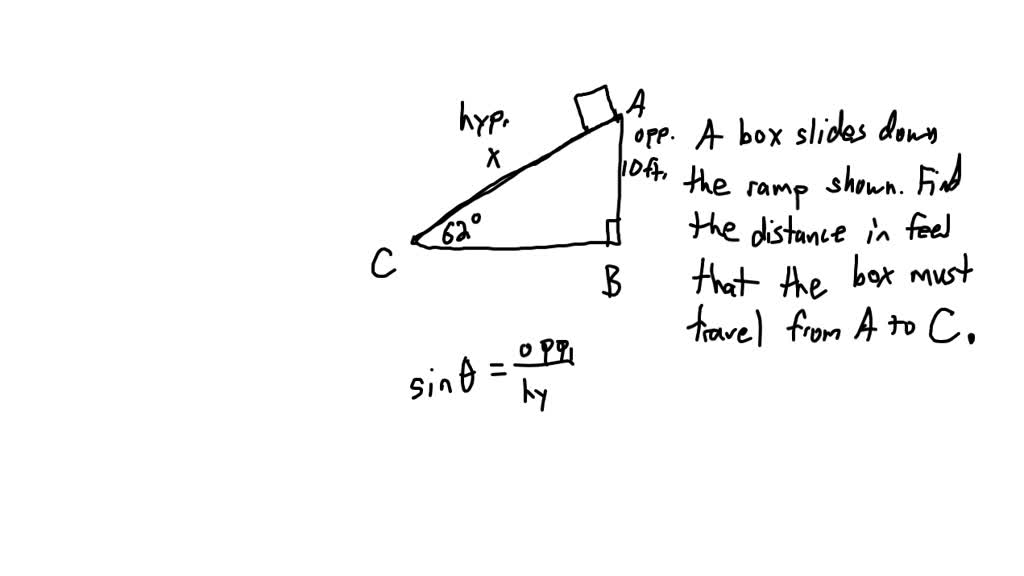 hyp.
x
A
opp.
10ft.
62°
C
B
A box slides down
the ramp shown. Find
the distance in feel
that the box must
travel from A to C.
sinθ = opp. / hy